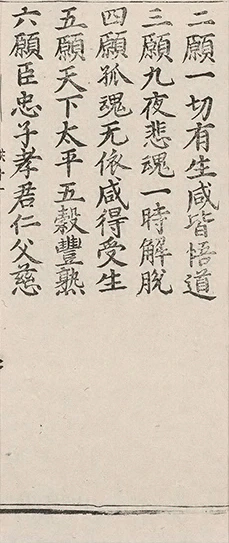 二願一切有生咸皆悟道
三願九夜悲魂一時解脫
四願孤魂无依咸得受生
五願天下太平五穀豐熟
六願臣忠子孝君仁父慈